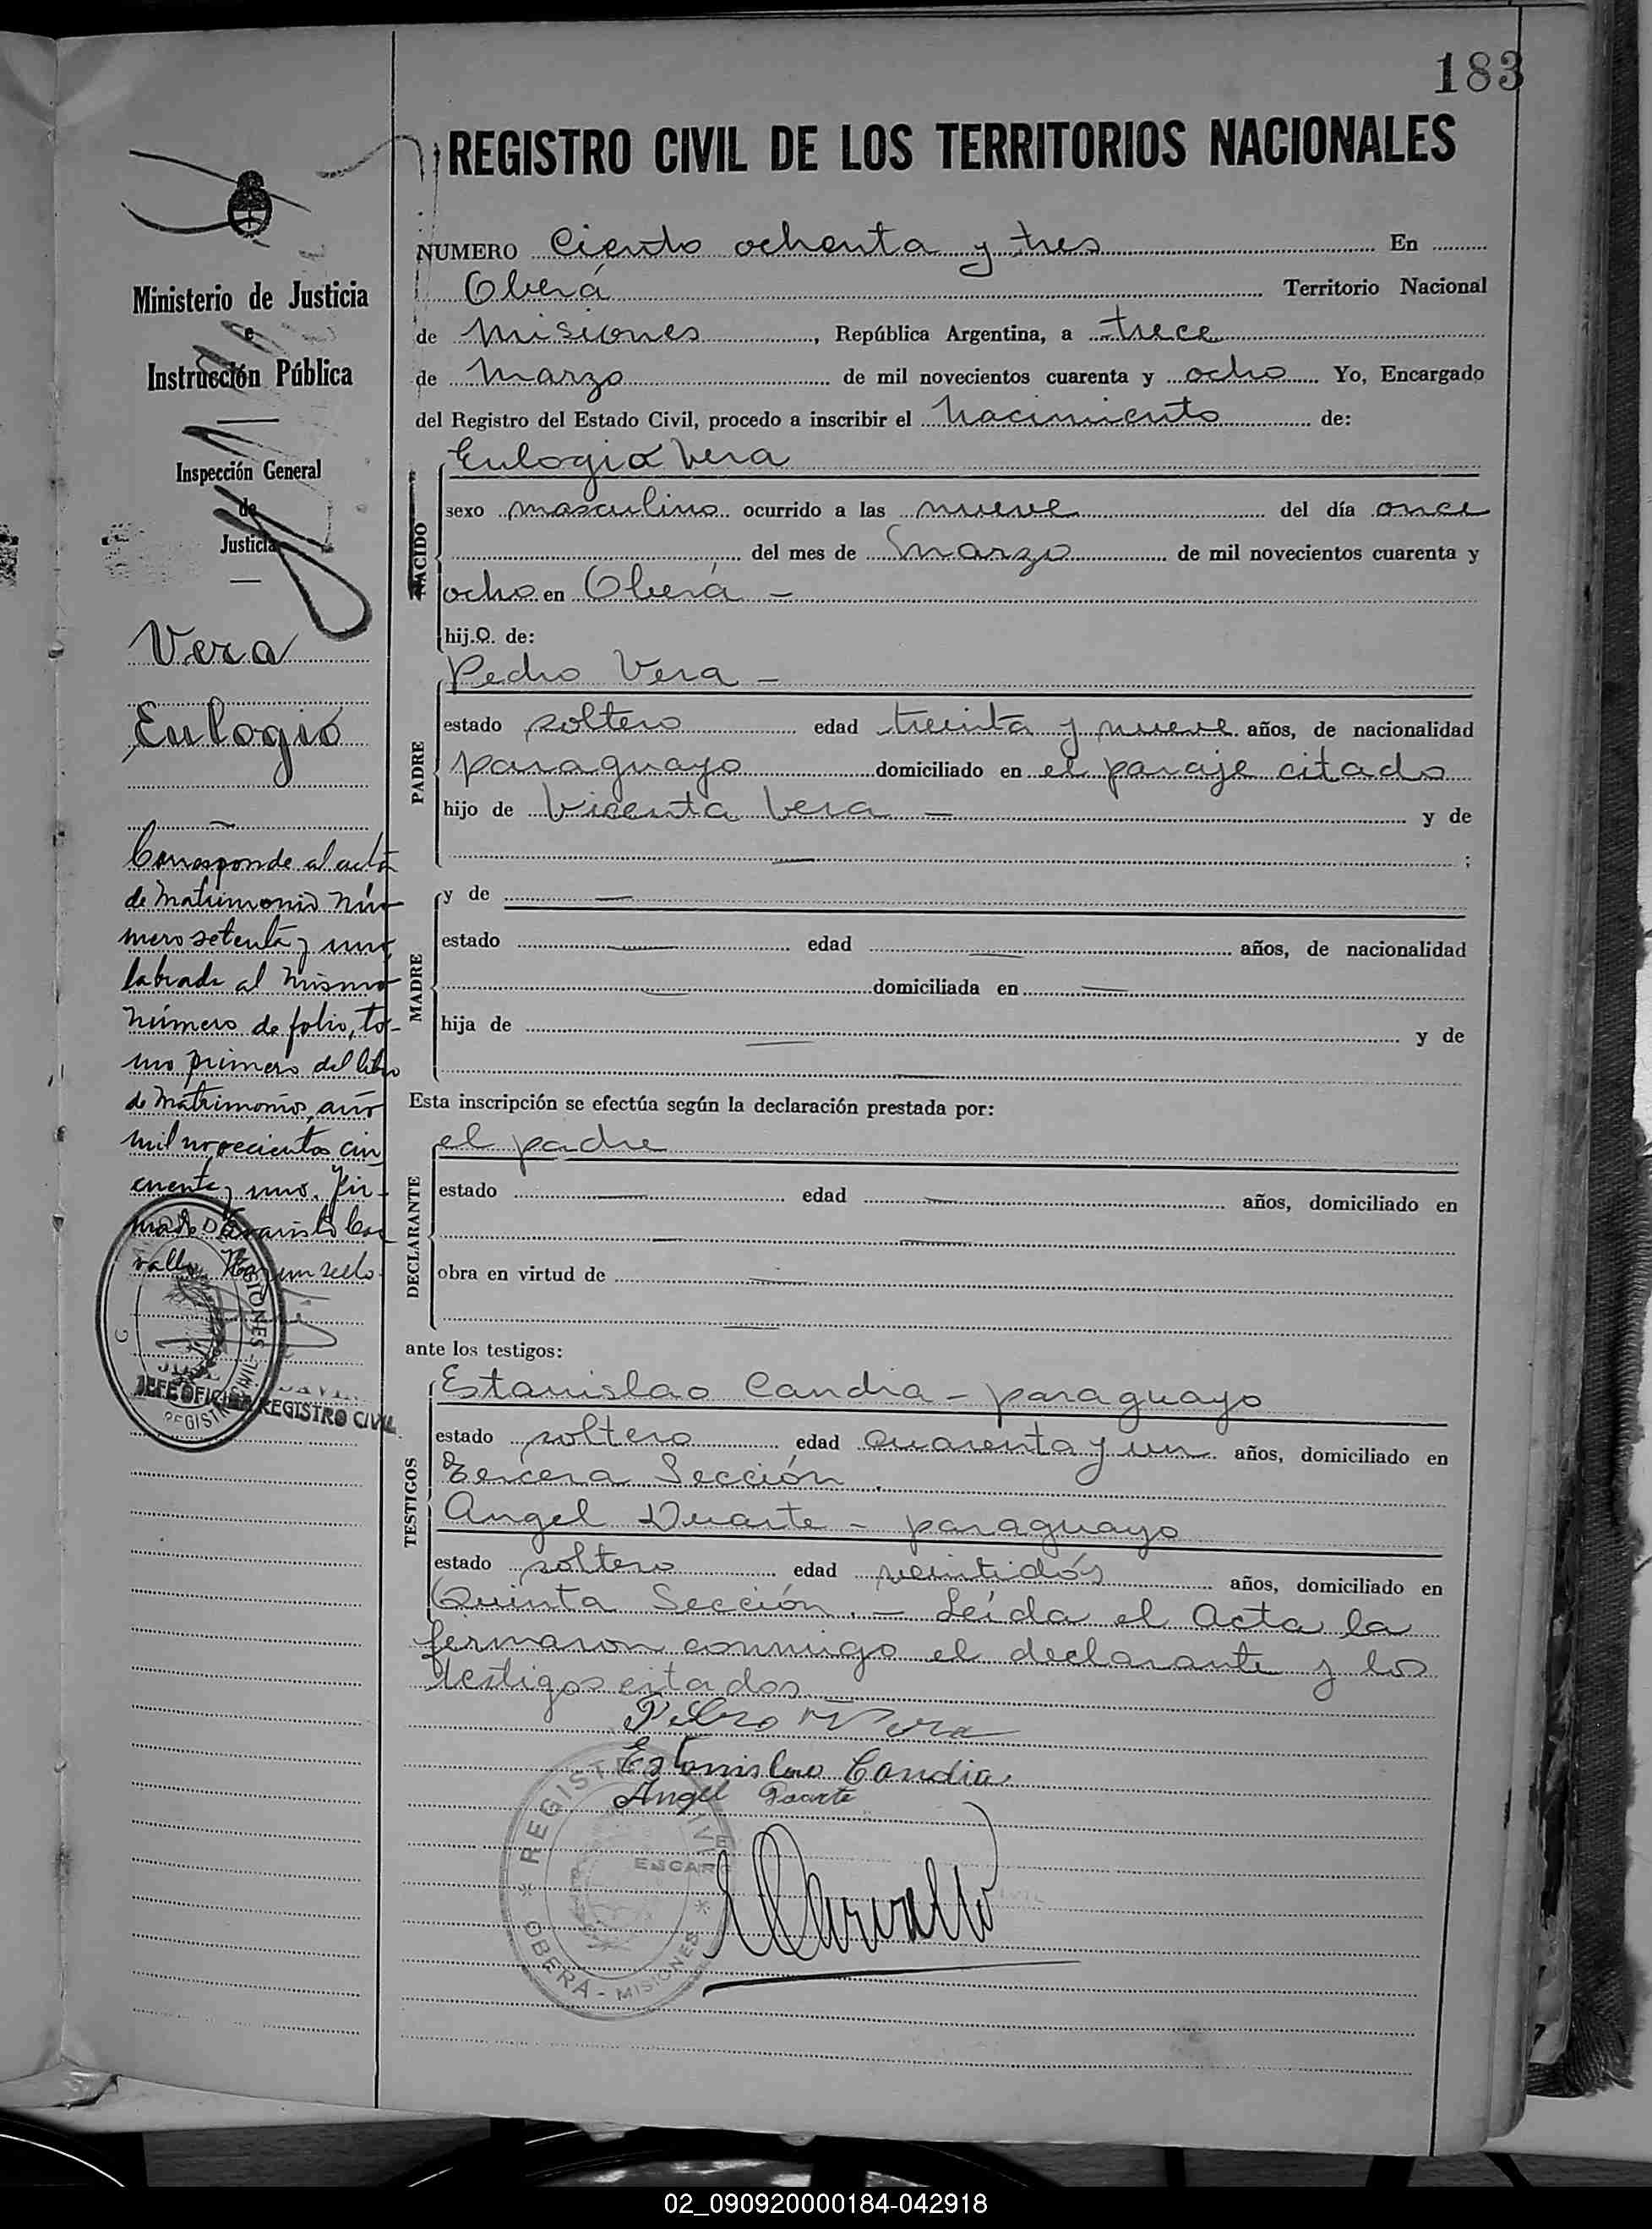 183
REGISTRO CIVIL DE LOS TERRITORIOS NACIONALES
Ministerio de Justicia
e
Instrucción Pública
Inspección General
de
Justicia
Vera
Eulogio
Corresponde al acta
de Matrimonio Nú-
mero setenta y uno,
labrada al mismo
número de folio, to-
mo primero del libro
de Matrimonios, año
mil novecientos cin
cuenta y uno. Fir-
mado Evaristo Car
vallo. Hay un sello
JEFE OFICINA REGISTRO CIVIL
NUMERO Ciento ochenta y tres En
Oberá Territorio Nacional
de Misiones, República Argentina, a trece
de Marzo de mil novecientos cuarenta y ocho Yo, Encargado
del Registro del Estado Civil, procedo a inscribir el Nacimiento de:
NACIDO
Eulogio Vera
sexo masculino ocurrido a las nueve del día once
del mes de Marzo de mil novecientos cuarenta y
ocho en Oberá –
hij.o. de:
PADRE
Pedro Vera –
estado soltero edad treinta y nueve años, de nacionalidad
paraguayo domiciliado en el paraje citado
hijo de Vicenta Vera – y de
— ;
MADRE
y de —
estado — edad — años, de nacionalidad
— domiciliada en —
hija de — y de
—
Esta inscripción se efectúa según la declaración prestada por:
DECLARANTE
el padre
estado — edad — años, domiciliado en
— —
obra en virtud de —
—
ante los testigos:
TESTIGOS
Estanislao Candia – paraguayo
estado soltero edad cuarenta y un años, domiciliado en
Tercera Sección.
Angel Duarte – paraguayo
estado soltero edad veintidós años, domiciliado en
Quinta Sección. – Leída el Acta la
firmaron conmigo el declarante y los
testigos citados. –
Pedro Vera
Estanislao Candia
Angel Duarte
REGISTRO CIVIL
ENCARG
OBERÁ - MISIONES
E Carvallo
02_090920000184-042918